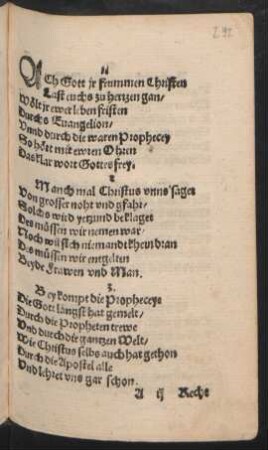 ACh Gott jr frummen Christen
Last euchs zu hertzen gan/
Wölt jr ewer leben fristen
Durchs Euangelion/
Vnnd durch die waren Prophecey
So hört mit ewren Ohren
Das klar wort Gottes frey.
2
Manch mal Christus vnns saget
Von grosser noht vnd gfahr/
Solchs wird yetzund beklaget
Des müssen wir nemen war/
Noch will sich niemandt kheren dran
Des müssen wir entgelten
Beyde Frawen vnd Man.
3.
Bey kompt die Propheceye
Die Gott langst hat gemelt/
Durch die Propheten trewe
Vnd durch die gantzen Welt/
Wie Christus selbs auch hat gethon
Durch die Apostel alle
Vnd lehret vns gar schon.
A ij Recht